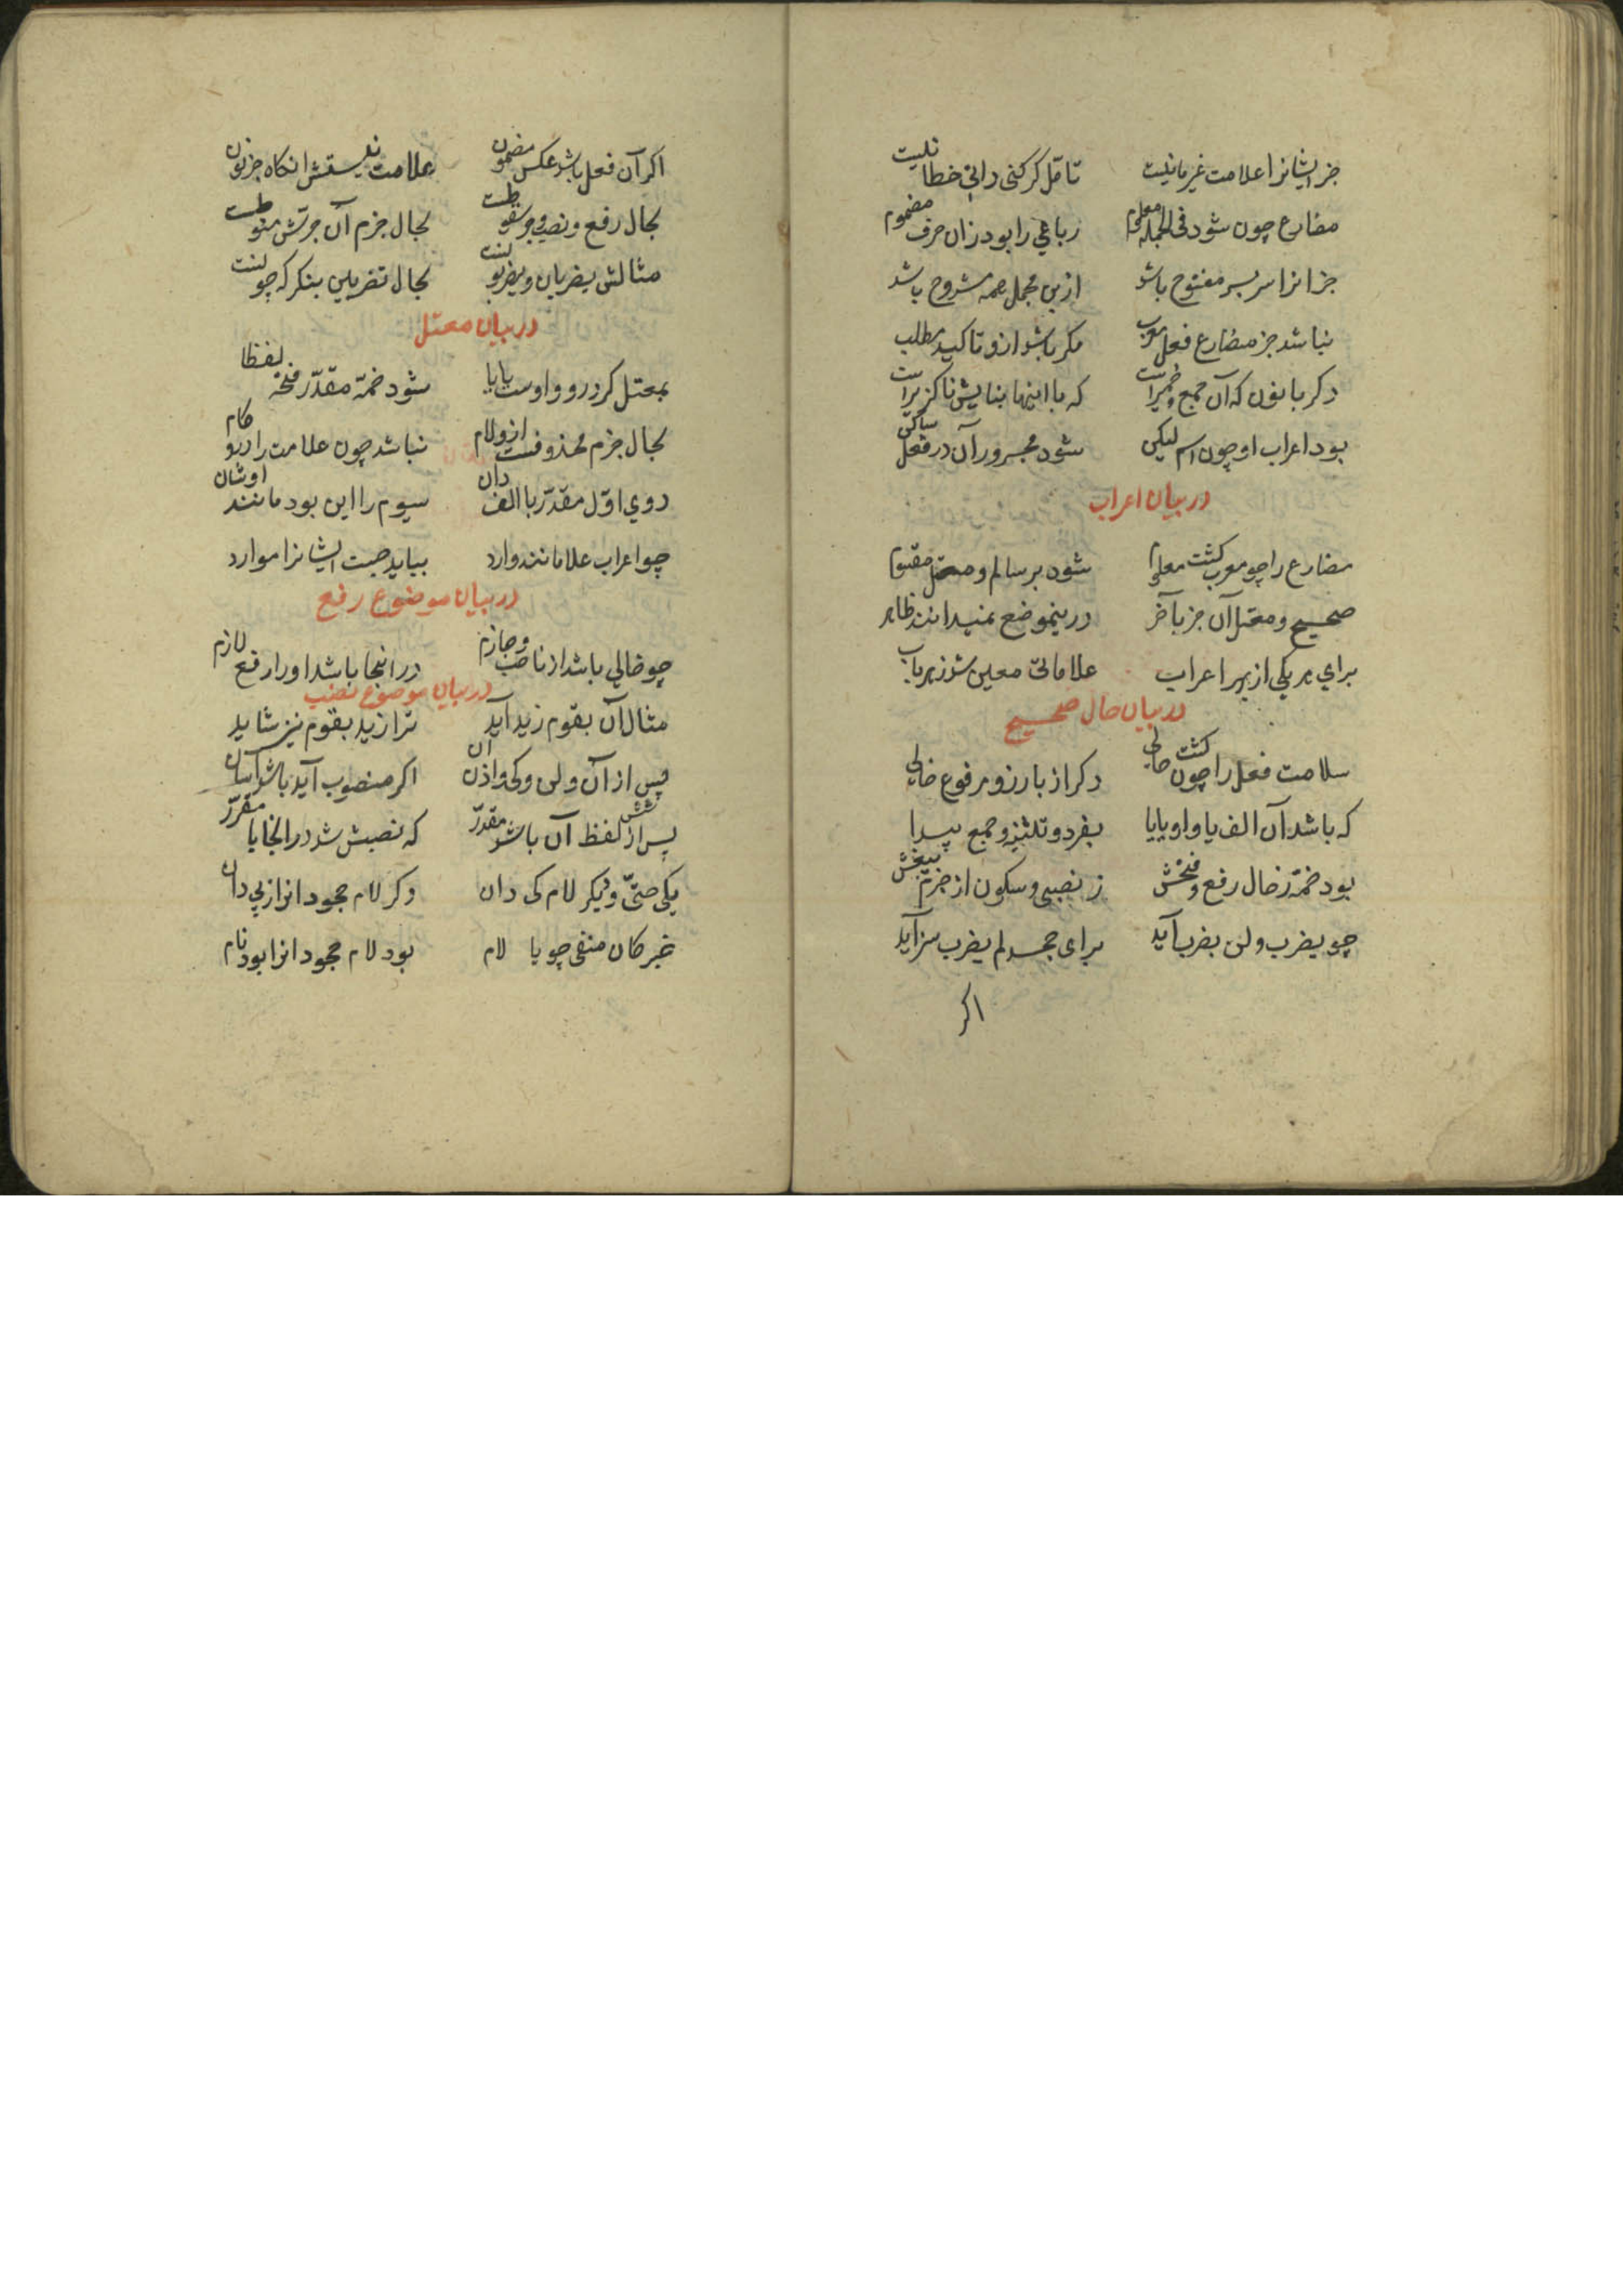 جز ایشانرا علامت غیر ما نیست تأمل گر کنی دانی خطا نیست
مضارع چون شود فی الجمله معلوم رباعی را بود زان حرف مضموم
جز انرا سر بسر مفتوح باشد ازین مجمل همه مشروح باشد
نباشد جز مضارع فعل معرب مکر باشد ازو تاکید مطلب
دکر با نون که آن جمع کثیر است که با اینها بنایش ناکزیر است
بود اعراب او چون اسم لیکن شود مجرور آن در فعل ساکن
در بیان اعراب
مضارع را چو معرب کشت معلوم شود بر سالم و معتل مقسوم
صحیح و معتل آن جز بآخر درینموضع نمیدانند ظاهر
برای هر یکی از بهر اعراب علاماتی معین شد ز هر باب
در بیان حال صحیح
سلامت فعل را چون کشت حالی دکر از بارز و مرفوع خالی
که باشد آن الف یا واو یا یا بفرد و تثنیه و جمع پیدا
بود ضمه ز حال رفع و فتحش ز نصبی و سکون از جزم
چو یضرب و لن یضرب آید برای جحد لم یضرب سزآید
اکر
اکر آن فعل باشد عکس مضمون علامت نیستش انکاه جز نون
بحال رفع و نصب و جر بحال جزم آن
مثالش یضربان و یضربو بحال تضربین بنکر که چو
در بیان معتل
بمعتل کر درو واوست یا یا شود ضمه مقدر فتحه لفظا
بحال جزم محذوفست ازو لام نباشد چون علامت را درو کام
دوی اول مقدر با الف دان سیوم را این بود مانند اوشان
چو اعراب علامانند وارد بیاید جست ایشانرا موارد
در بیان موضوع رفع
چو خالی باشد از ناصب و جازم در انجا باشد او را رفع لازم
در بیان موضوع نصب
مثال آن یقوم زید آید ترا زید یقوم نیز شاید
پس از آن و لن و کی و اذن آن اکر منصوب آید باشد آسان
پس از شش لفظ آن باشد مقدر که نصبش شد در انجایا مقرر
یکی حتی و دیکر لام کی دان دکر لام جحود انرا ز پی دان
خبر کان منفی چو با لام بود لام جحود انرا بود نام